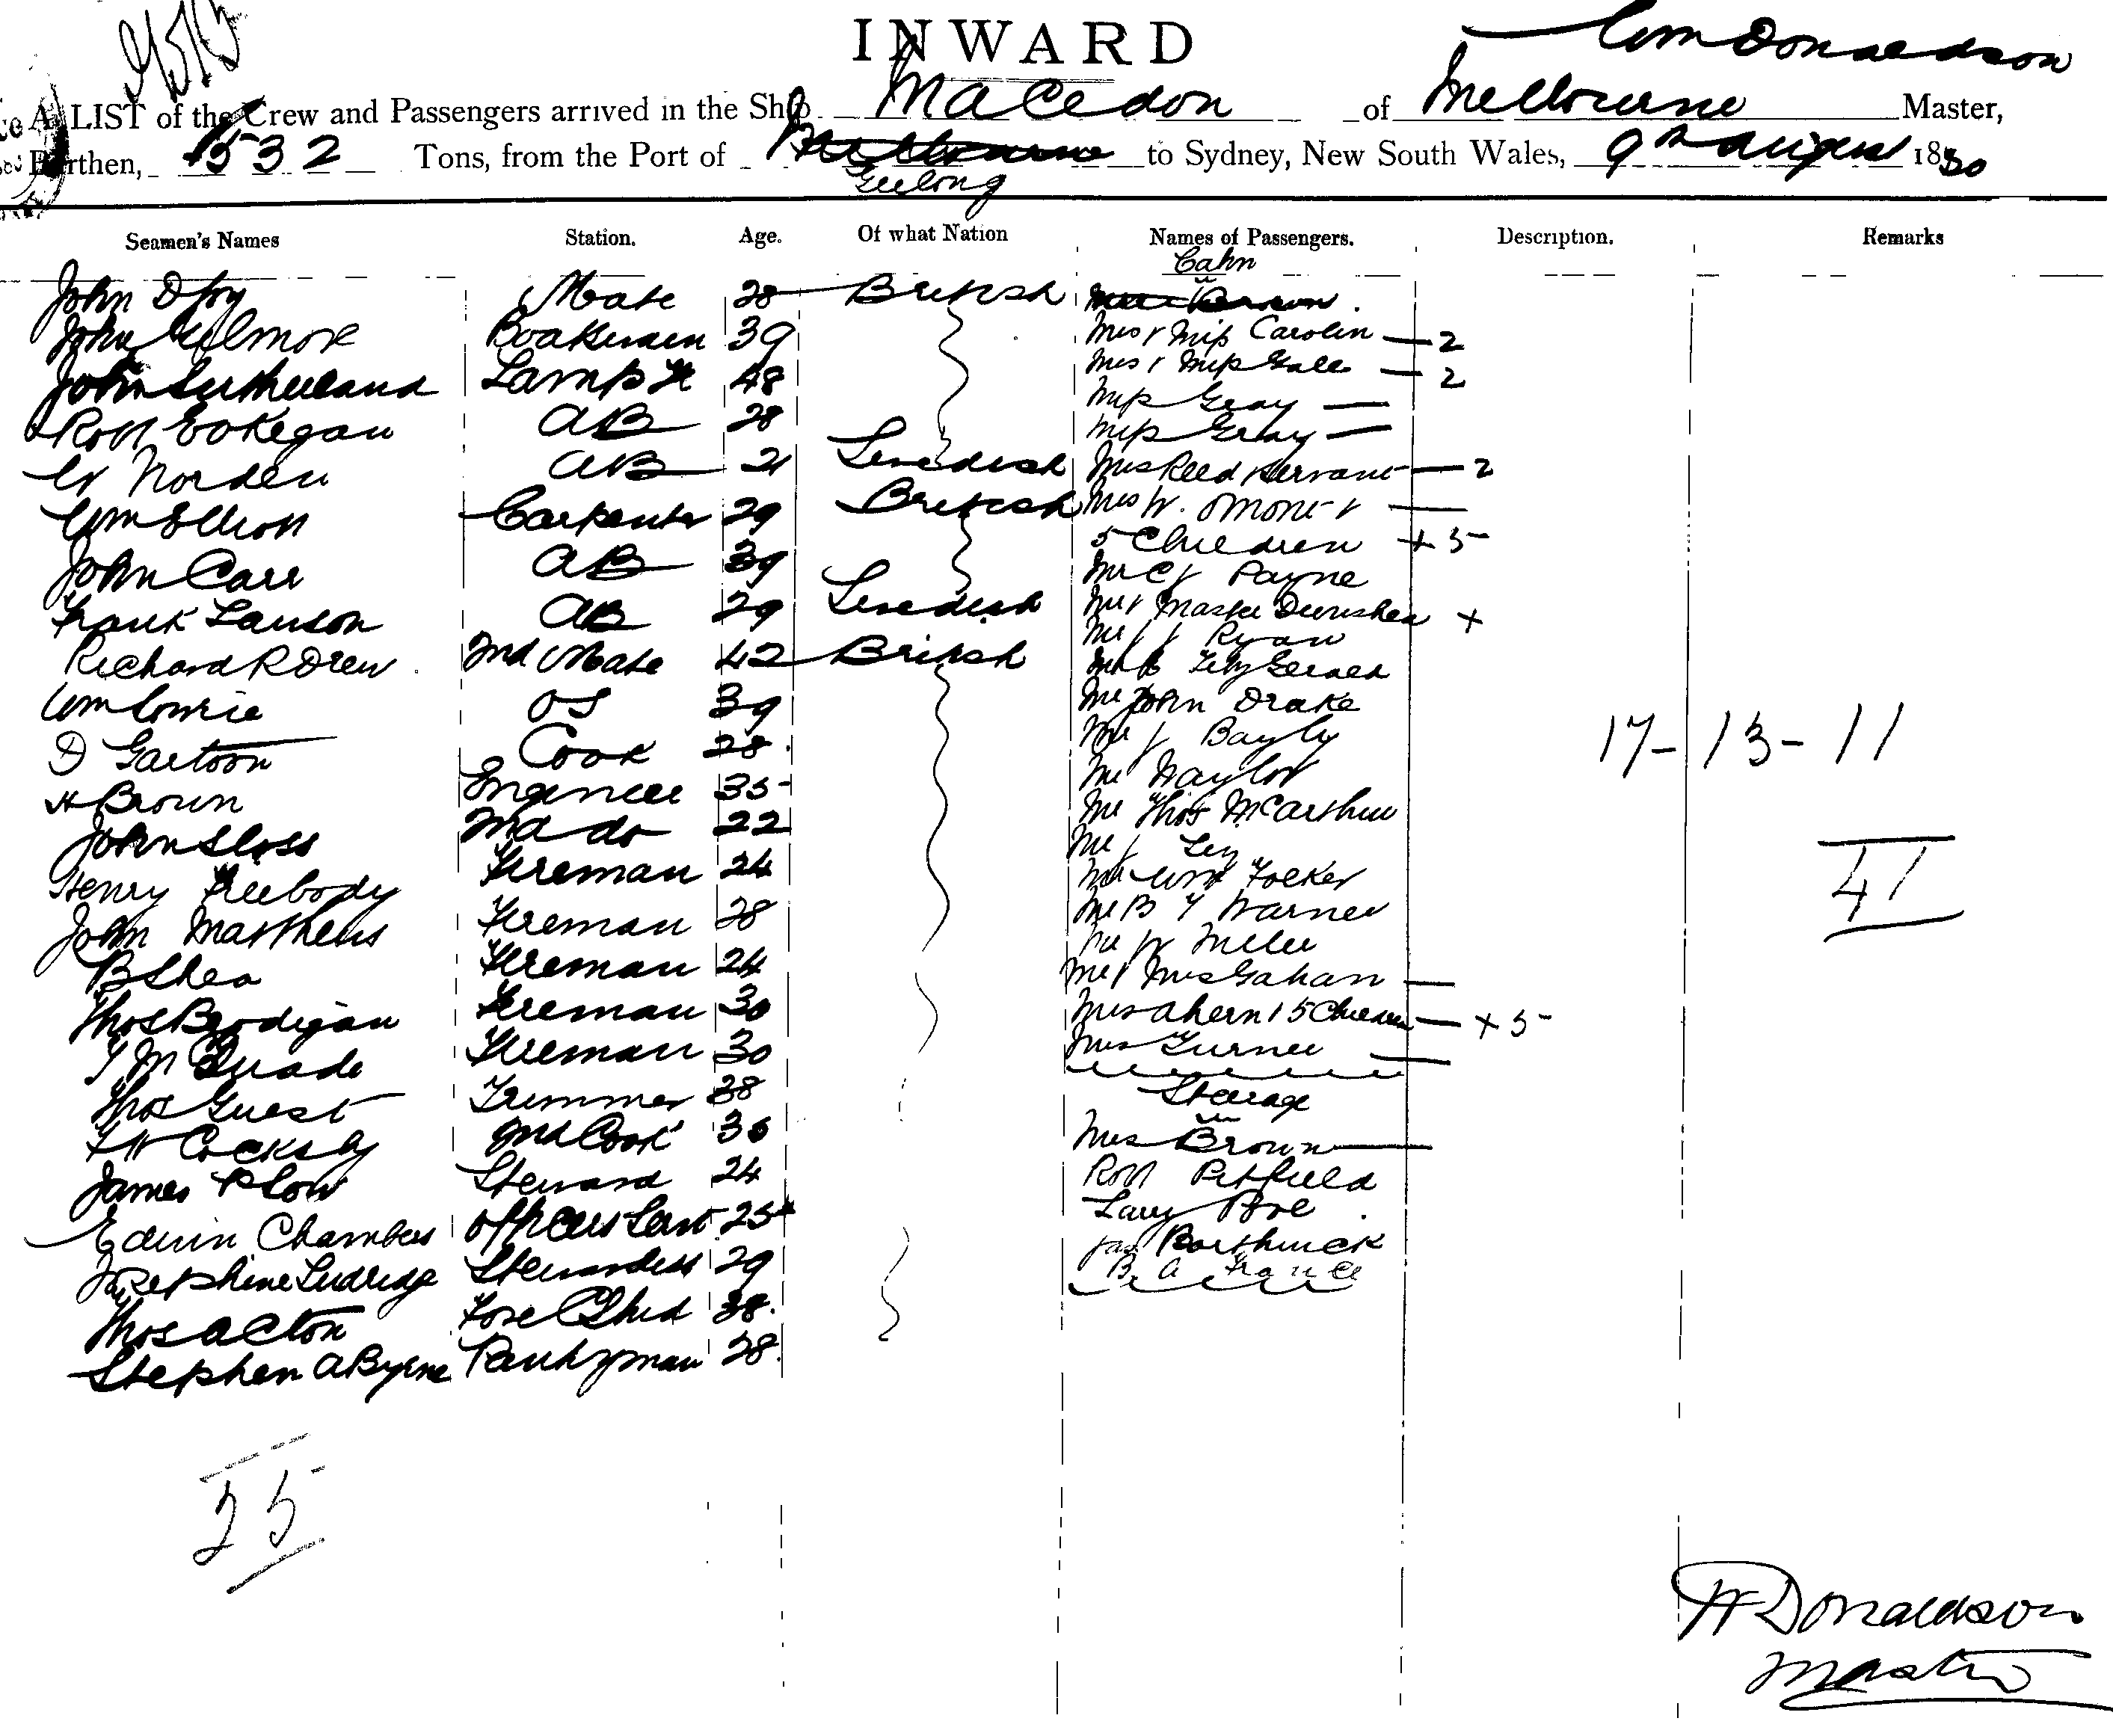 INWARD
Wm Donaldson
A LIST of the Crew and Passengers arrived in the Ship Macedon of Melbourne Master,
Burthen, 532 Tons, from the Port of Melbourne to Sydney, New South Wales, 9th August 1880
Geelong
Seamen's Names Station. Age. Of what Nation Names of Passengers. Description. Remarks
Cahn
John Mate 28 British
John Gilmore 39 Mrs & Miss Carolin — 2
John Sutherland Lamp 48 Mrs & Miss Gale — 2
Robt AB 28 Miss Gray —
Miss Gray —
Norden AB 21 Swedish Mrs Reed & Servant — 2
Wm Elliott Carpenter 29 British Mrs W. —
5 Children + 5
John Carr AB 39 Mr C J Payne
Frank Lawson AB 29 Swedish Mr & Master +
Mr J J Ryan
Richard R Drew 2nd Mate 42 British Fitz Gerald
Wm OS 39 Mr John Drake
D Cook 28 Mr J Bayly
17 - 13 - 11
H Brown Engineer 35 Mr Naylor
John Sloss 2nd do 22 Mr Thos McArthur
Mr J
Henry Freebody Fireman 24 Mr Wm
41
John Matthews Fireman 28 Mr B Warner
Mr W
B Shea Fireman 24 Mr & Mrs Gahan —
Thos Brodigan Fireman 30 Mrs Ahern & 5 Children — + 5
T McQuade Fireman 30 Mrs Turner —
Thos Guest Trimmer 38 Steerage
F W Cocksby 2nd Cook 30 Mrs Brown —
James Plow Steward 24 Robt Pitfield
Edwin Chambers Officers Servt 25 Larry
Josephine Stewardess 29 Jas Borthwick
B. A France
Thos Acton Fore 38.
Stephen A Byrne Pantryman 28.
25
W Donaldson
Master